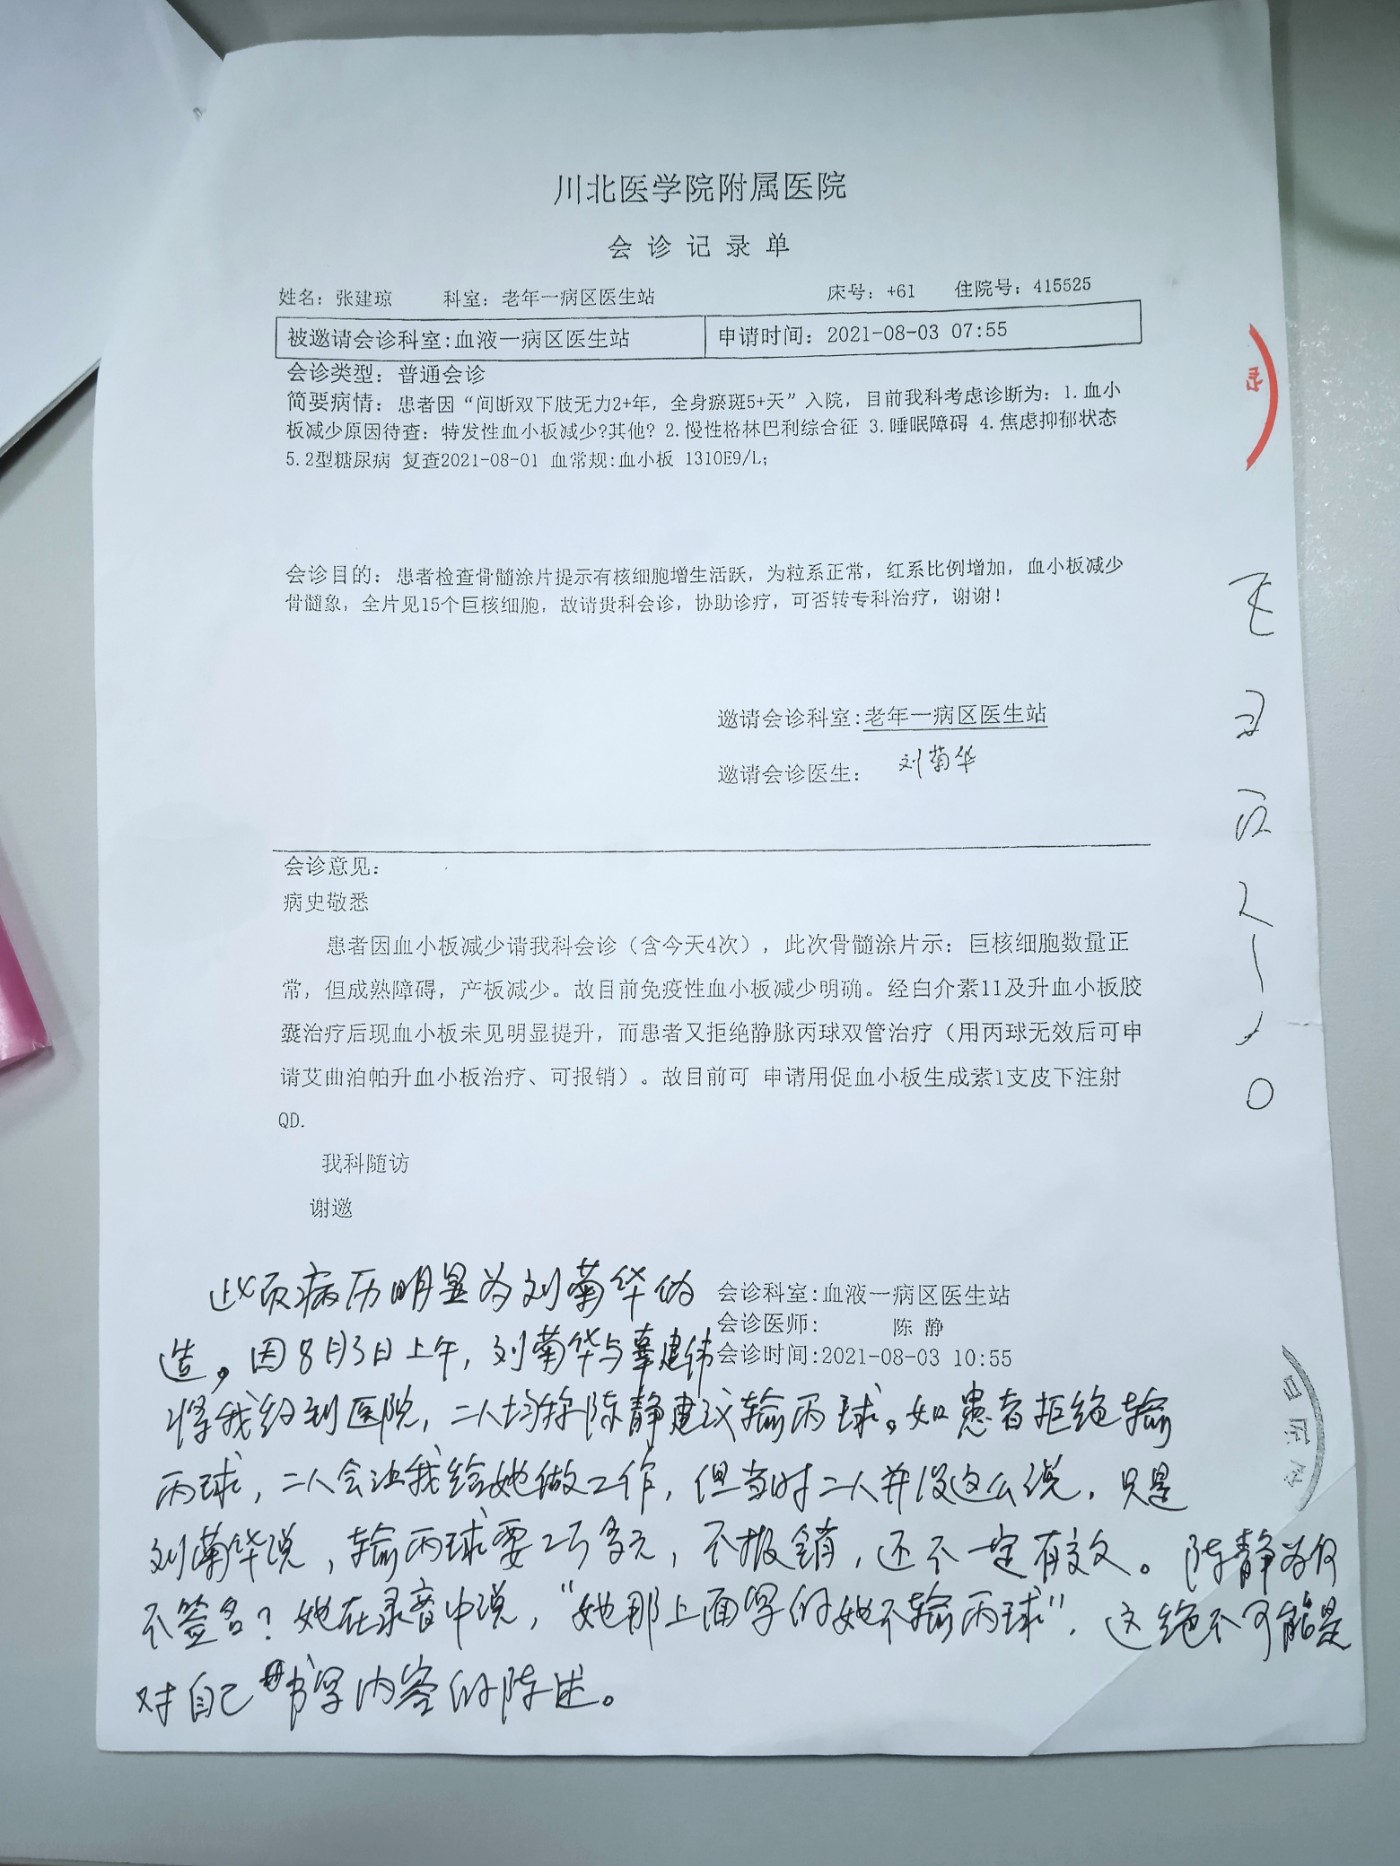 川北医学院附属医院
会诊记录单
姓名：张建琼 科室：老年一病区医生站 床号：+61 住院号：415525
被邀请会诊科室:血液一病区医生站 申请时间：2021-08-03 07:55
会诊类型：普通会诊
简要病情：患者因“间断双下肢无力2+年，全身瘀斑5+天”入院，目前我科考虑诊断为：1.血小
板减少原因待查：特发性血小板减少?其他? 2.慢性格林巴利综合征 3.睡眠障碍 4.焦虑抑郁状态
5.2型糖尿病 复查2021-08-01 血常规:血小板 1310E9/L;
会诊目的：患者检查骨髓涂片提示有核细胞增生活跃，为粒系正常，红系比例增加，血小板减少
骨髓象，全片见15个巨核细胞，故请贵科会诊，协助诊疗，可否转专科治疗，谢谢！
邀请会诊科室:老年一病区医生站
邀请会诊医生：刘菊华
会诊意见：
病史敬悉
患者因血小板减少请我科会诊（含今天4次），此次骨髓涂片示：巨核细胞数量正
常，但成熟障碍，产板减少。故目前免疫性血小板减少明确。经白介素11及升血小板胶
囊治疗后现血小板未见明显提升，而患者又拒绝静脉丙球双管治疗（用丙球无效后可申
请艾曲泊帕升血小板治疗、可报销）。故目前可 申请用促血小板生成素1支皮下注射
QD.
我科随访
谢邀
会诊科室:血液一病区医生站
会诊医师：陈静
会诊时间:2021-08-03 10:55
此页病历明显为刘菊华伪
造。因8月3日上午，刘菊华与辜建伟
将我约到医院，二人均称陈静建议输丙球。如患者拒绝输
丙球，二人会让我给她做工作，但当时二人并没这么说，只是
刘菊华说，输丙球要2万多元，不报销，还不一定有效。陈静为何
不签名？她在录音中说，“她那上面写的她不输丙球”，这绝不可能是
对自己书写内容的陈述。